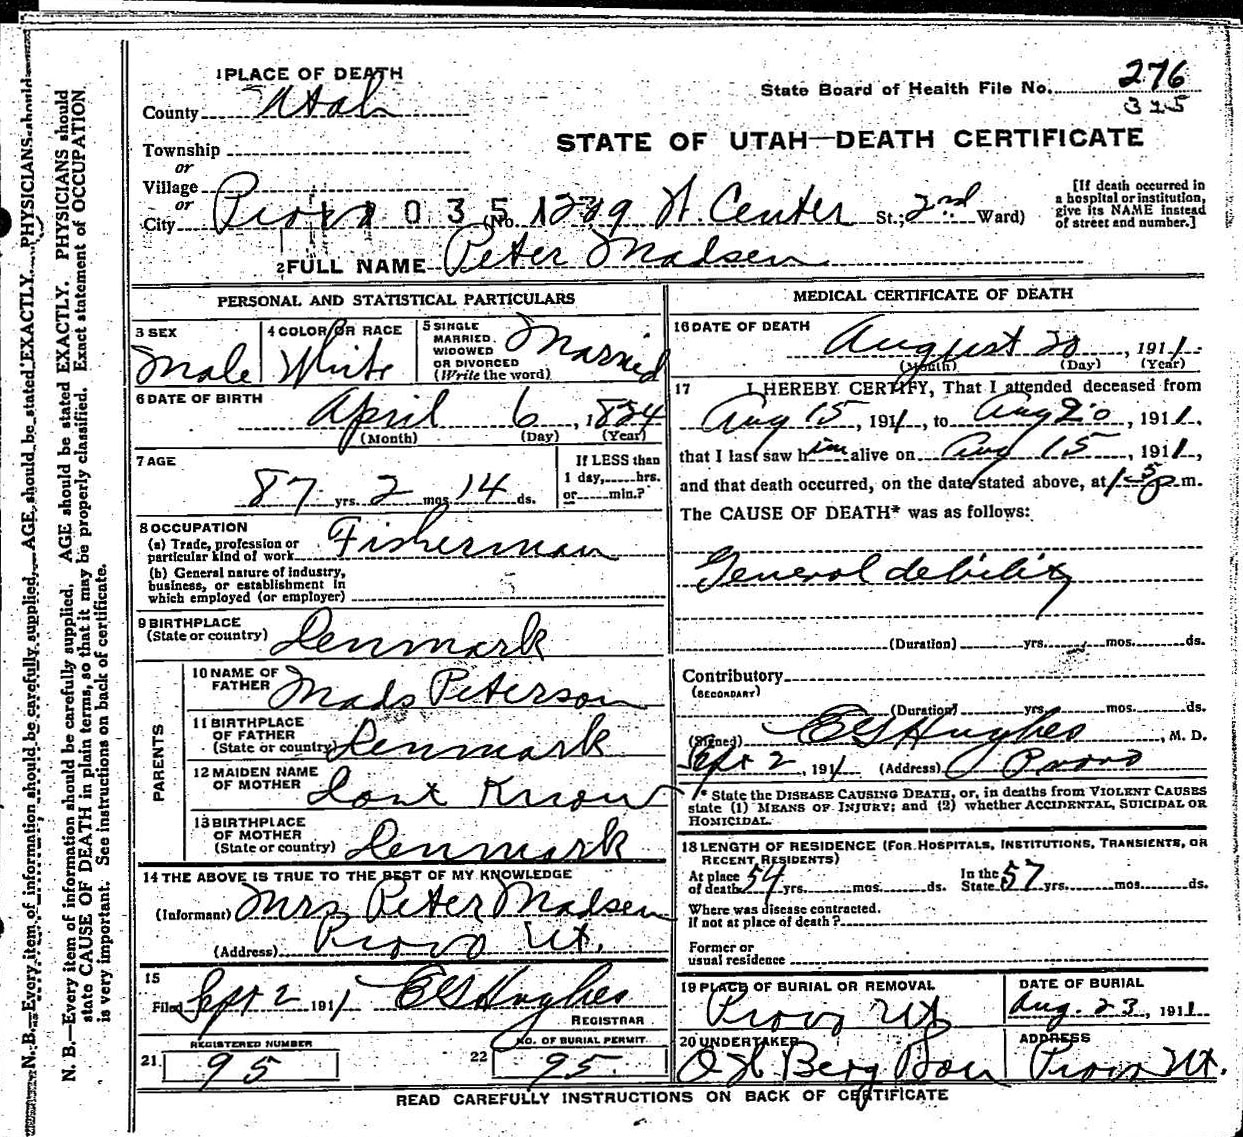 1 PLACE OF DEATH
County Utah
State Board of Health File No. 276
325
STATE OF UTAH—DEATH CERTIFICATE
Township
or
Village
or
City Provo (No. 1239 W. Center St.; 2nd Ward)
[If death occurred in a hospital or institution, give its NAME instead of street and number.]
2 FULL NAME Peter Madsen
PERSONAL AND STATISTICAL PARTICULARS
3 SEX
Male
4 COLOR OR RACE
White
5 SINGLE
MARRIED.
WIDOWED
OR DIVORCED
(Write the word)
Married
6 DATE OF BIRTH
April 6, 1824
(Month) (Day) (Year)
7 AGE
87 yrs. 2 mos. 14 ds.
If LESS than
1 day,......hrs.
or......min.?
8 OCCUPATION
(a) Trade, profession or
particular kind of work Fisherman
(b) General nature of industry,
business, or establishment in
which employed (or employer)
9 BIRTHPLACE
(State or country) Denmark
PARENTS
10 NAME OF
FATHER Mads Peterson
11 BIRTHPLACE
OF FATHER
(State or country) Denmark
12 MAIDEN NAME
OF MOTHER Dont Know
13 BIRTHPLACE
OF MOTHER
(State or country) Denmark
14 THE ABOVE IS TRUE TO THE BEST OF MY KNOWLEDGE
(Informant) Mrs Peter Madsen
(Address) Provo Ut.
15
Filed Sept 2 1911 E G Hughes
REGISTRAR
REGISTERED NUMBER
21 95
NO. OF BURIAL PERMIT
22 95
MEDICAL CERTIFICATE OF DEATH
16 DATE OF DEATH
August 20, 1911
(Month) (Day) (Year)
17 I HEREBY CERTIFY, That I attended deceased from
Aug 15, 1911, to Aug 20, 1911,
that I last saw him alive on Aug 15, 1911,
and that death occurred, on the date stated above, at p m.
The CAUSE OF DEATH* was as follows:
General debility
(Duration) yrs. mos. ds.
Contributory
(SECONDARY)
(Duration) yrs. mos. ds.
(Signed) E G Hughes, M. D.
Sept 2, 1911 (Address) Provo
* State the DISEASE CAUSING DEATH, or, in deaths from VIOLENT CAUSES
state (1) MEANS OF INJURY; and (2) whether ACCIDENTAL, SUICIDAL OR
HOMICIDAL.
18 LENGTH OF RESIDENCE (FOR HOSPITALS, INSTITUTIONS, TRANSIENTS, OR
RECENT RESIDENTS)
At place
of death 54 yrs. mos. ds.
In the
State 57 yrs. mos. ds.
Where was disease contracted.
If not at place of death?
Former or
usual residence
19 PLACE OF BURIAL OR REMOVAL
Provo Ut
DATE OF BURIAL
Aug. 23, 1911
20 UNDERTAKER
O H Berg Son
ADDRESS
Provo Ut.
READ CAREFULLY INSTRUCTIONS ON BACK OF CERTIFICATE
N. B.—Every item of information should be carefully supplied. AGE should be stated EXACTLY. PHYSICIANS should
N. B.—Every item of information should be carefully supplied. AGE should be stated EXACTLY. PHYSICIANS should
state CAUSE OF DEATH in plain terms, so that it may be properly classified. Exact statement of OCCUPATION
is very important. See instructions on back of certificate.